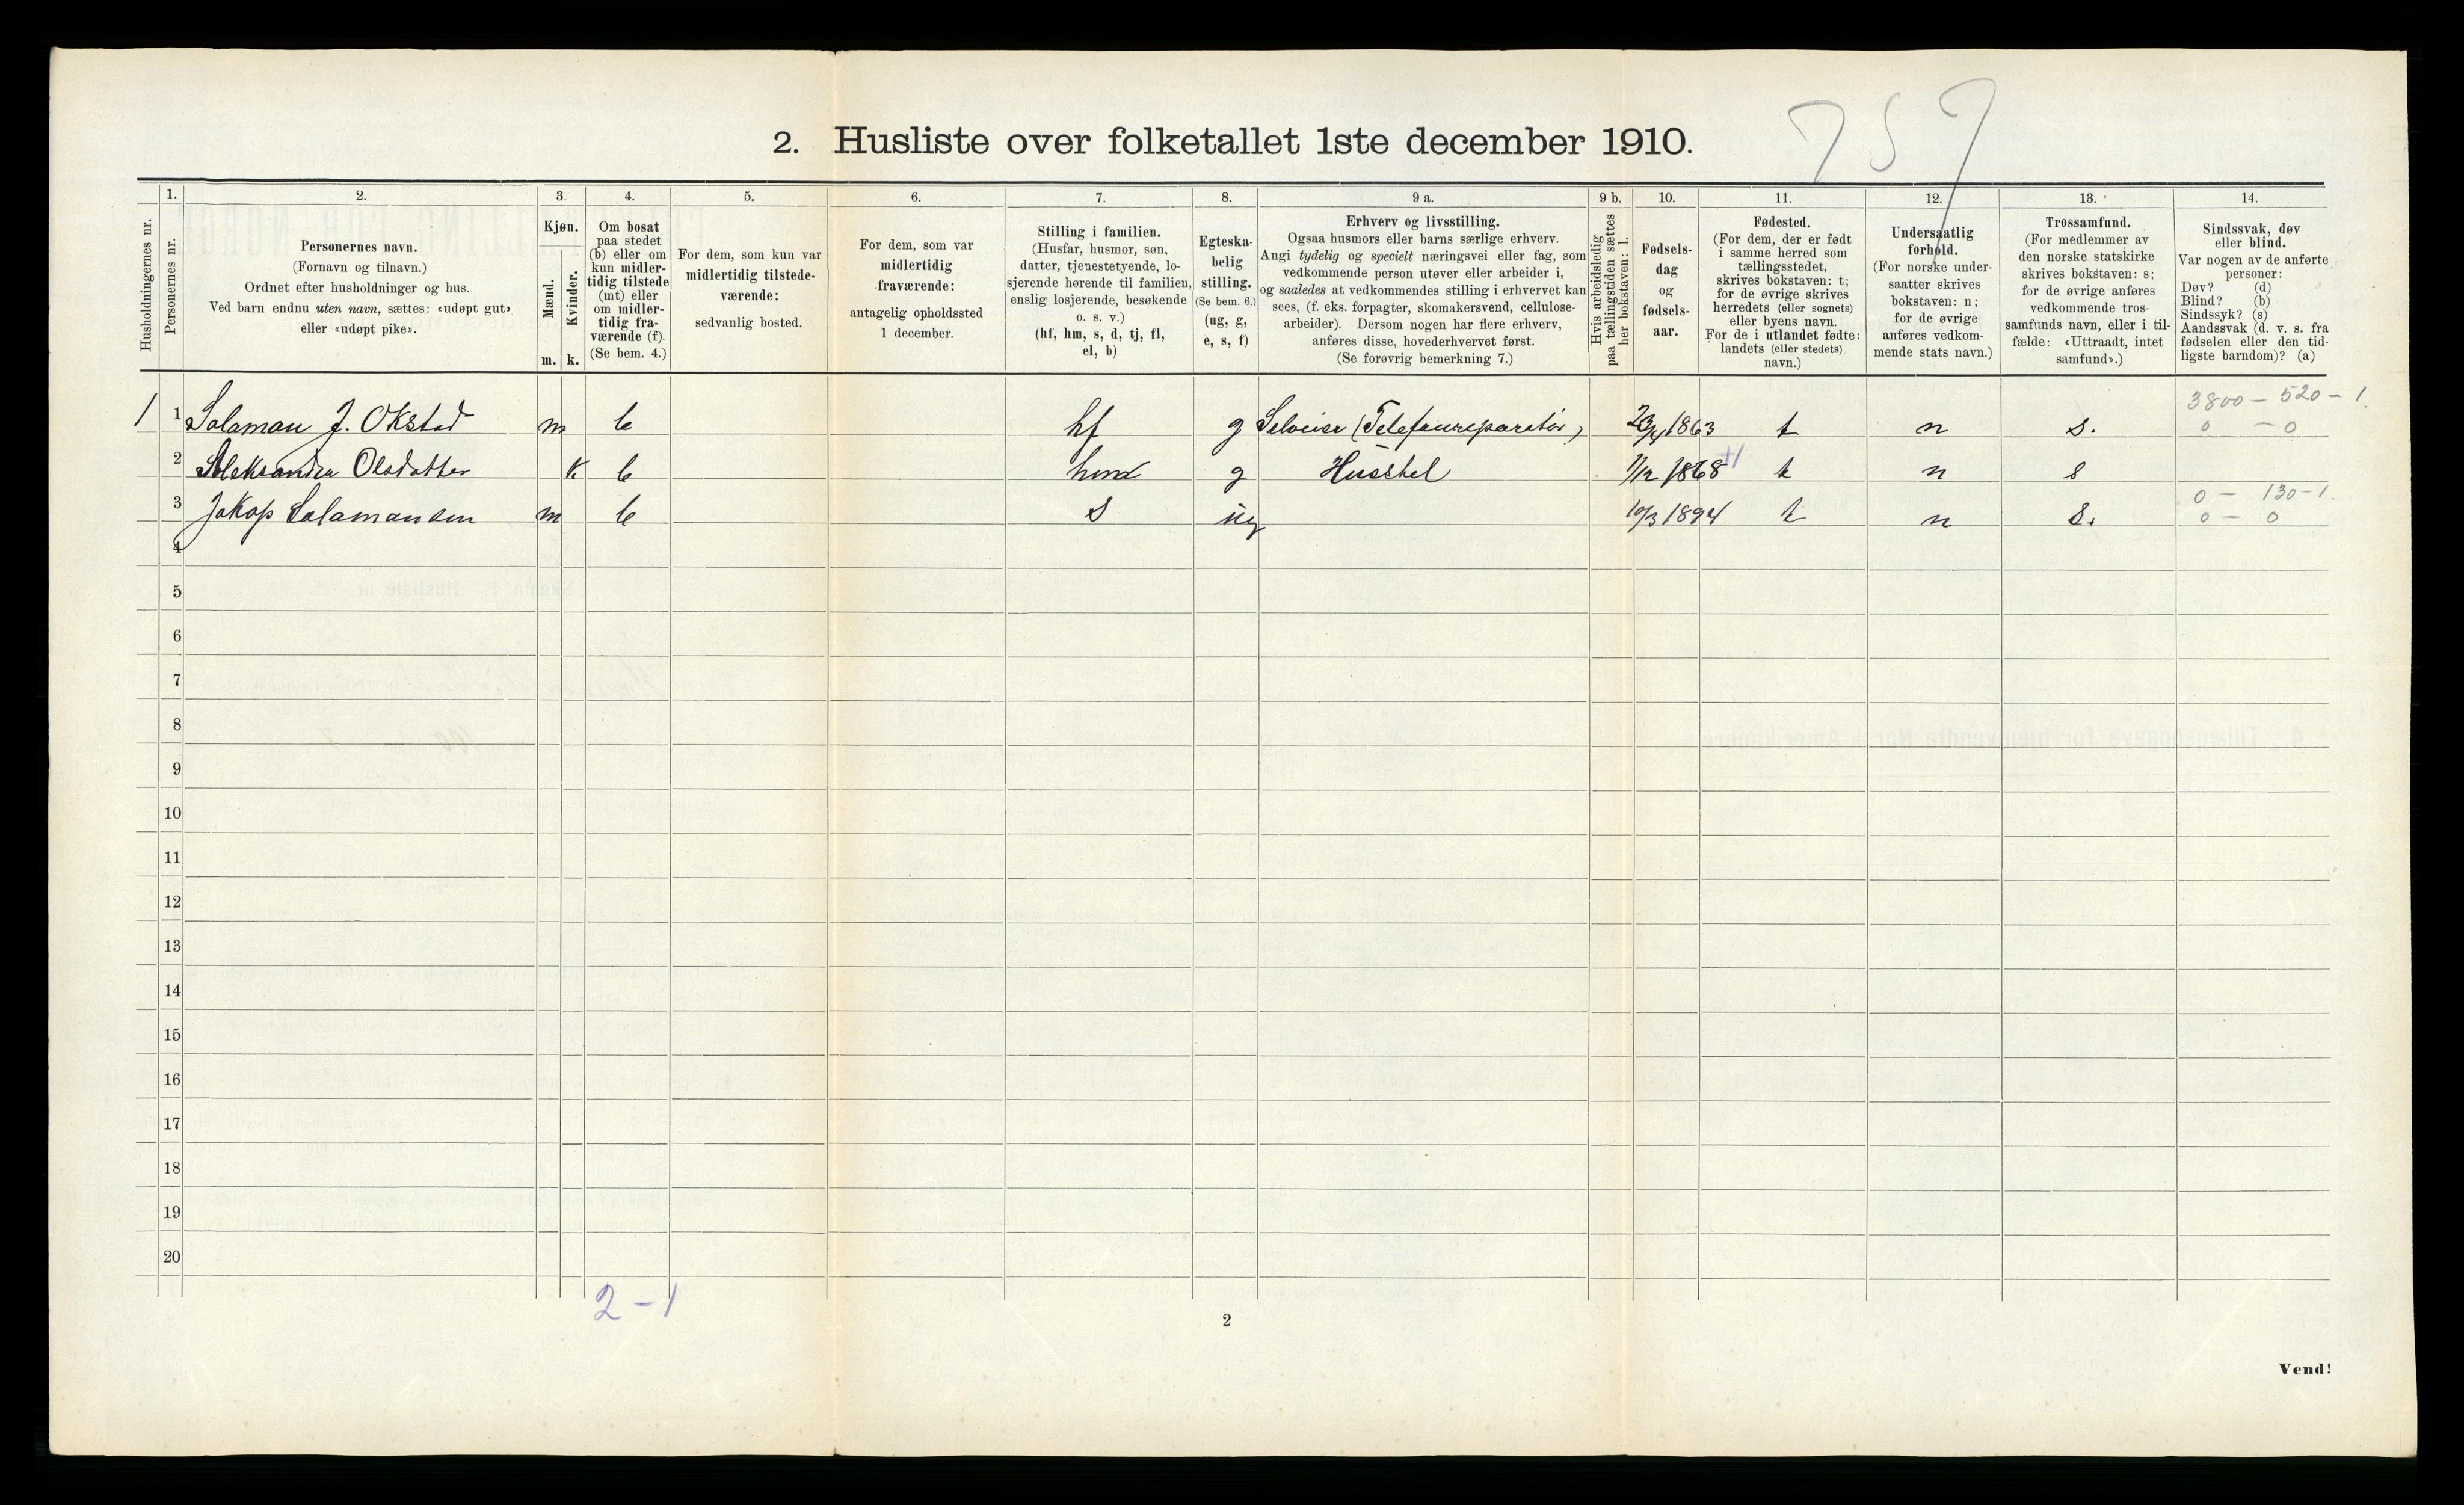 757
2. Husliste over folketallet 1ste december 1910.
Husholdningernes nr.
1.
Personernes nr.
2.
Personernes navn.
(Fornavn og tilnavn.)
Ordnet efter husholdninger og hus.
Ved barn endnu uten navn, sættes: «udøpt gut»
eller «udøpt pike».
3.
Kjøn.
Mænd.
Kvinder.
m. k.
4.
Om bosat
paa stedet
(b) eller om
kun midler-
tidig tilstede
(mt) eller
om midler-
tidig fra-
værende (f).
(Se bem. 4.)
5.
For dem, som kun var
midlertidig tilstede-
værende:
sedvanlig bosted.
6.
For dem, som var
midlertidig
fraværende:
antagelig opholdssted
1 december.
7.
Stilling i familien.
(Husfar, husmor, søn,
datter, tjenestetyende, lo-
sjerende hørende til familien,
enslig losjerende, besøkende
o. s. v.)
(hf, hm, s, d, tj, fl,
el, b)
8.
Egteska-
belig
stilling.
(Se bem. 6.)
(ug, g,
e, s, f)
9 a.
Erhverv og livsstilling.
Ogsaa husmors eller barns særlige erhverv.
Angi tydelig og specielt næringsvei eller fag, som
vedkommende person utøver eller arbeider i,
og saaledes at vedkommendes stilling i erhvervet kan
sees, (f. eks. forpagter, skomakersvend, cellulose-
arbeider). Dersom nogen har flere erhverv,
anføres disse, hovederhvervet først.
(Se forøvrig bemerkning 7.)
9 b.
Hvis arbeidsledig
paa tællingstiden sættes
her bokstaven: l.
10.
Fødsels-
dag
og
fødsels-
aar.
11.
Fødested.
(For dem, der er født
i samme herred som
tællingsstedet,
skrives bokstaven: t;
for de øvrige skrives
herredets (eller sognets)
eller byens navn.
For de i utlandet fødte:
landets (eller stedets)
navn.)
12.
Undersaatlig
forhold.
(For norske under-
saatter skrives
bokstaven: n;
for de øvrige
anføres vedkom-
mende stats navn.)
13.
Trossamfund.
(For medlemmer av
den norske statskirke
skrives bokstaven: s;
for de øvrige anføres
vedkommende tros-
samfunds navn, eller i til-
fælde: «Uttraadt, intet
samfund».)
14.
Sindssvak, døv
eller blind.
Var nogen av de anførte
personer:
Døv? (d)
Blind? (b)
Sindssyk? (s)
Aandssvak (d. v. s. fra
fødselen eller den tid-
ligste barndom)? (a)
3800 – 520 – 1.
1 1 Salamon J. Okstad m b hf g Selveier (Telefonreparatör) 1863 t n s. 0 – 0
2 Aleksandra Olsdatter k b hmd g Husstel 1/12 1868 +1 t n s
0 – 130 – 1.
3 Jakop Salamonsen m b s ug 10/3 1894 t n s. 0 – 0
4
5
6
7
8
9
10
11
12
13
14
15
16
17
18
19
20
2 – 1
2
Vend!